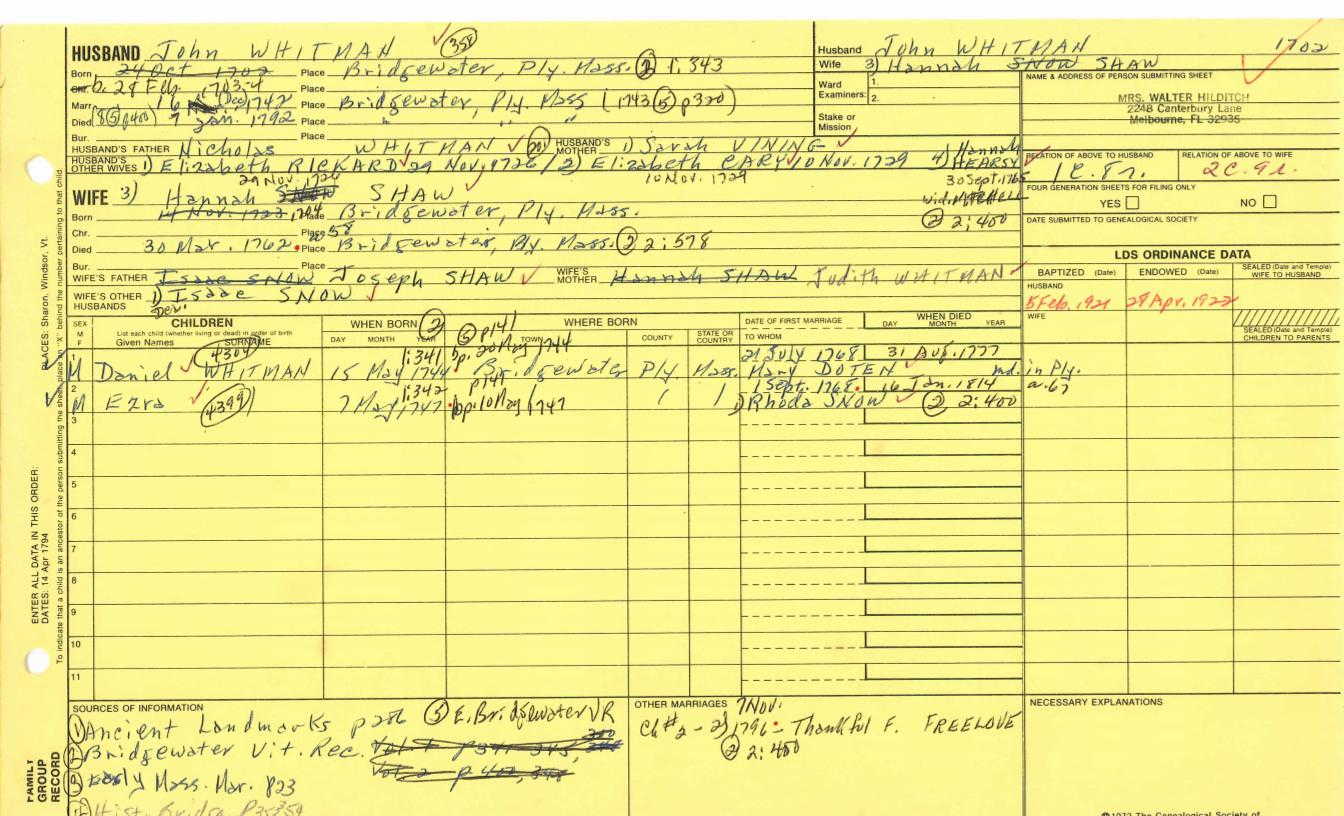 HUSBAND John WHITMAN 358
Born 24 Oct 1702 Place Bridgewater, Ply. Mass. 2 1:343
Chr. b. 28 Feb. 1703-4 Place
Marr. 16 Dec 1742 Place Bridgewater, Ply. Mass (1743 5 p320)
Died (8 5 p400) 7 Jan. 1792 Place " " "
Bur. Place
HUSBAND'S FATHER Nicholas WHITMAN 20 HUSBAND'S MOTHER 1) Sarah VINING
HUSBAND'S OTHER WIVES 1) Elizabeth RICKARD 29 Nov. 1726 / 2) Elizabeth CARY 10 Nov. 1729 4) Hannah HEARSY
29 Nov. 1726 10 Nov. 1729 30 Sept. 1765
WIFE 3) Hannah SNOW SHAW wid. MITCHELL
Born 4 Nov. 1722, 1704 Place Bridgewater, Ply. Mass. 2 2:400
Chr. Place
Died 30 Mar. 1762. 58 Place Bridgewater, Ply. Mass. 2 2:578
Bur. Place
WIFE'S FATHER Isaac SNOW Joseph SHAW WIFE'S MOTHER Hannah SHAW Judith WHITMAN
WIFE'S OTHER HUSBANDS 1) Isaac SNOW
Husband John WHITMAN 1702
Wife 3) Hannah SNOW SHAW
Ward Examiners: 1.
2.
Stake or Mission
NAME & ADDRESS OF PERSON SUBMITTING SHEET
MRS. WALTER HILDITCH
2248 Canterbury Lane
Melbourne, FL 32935
RELATION OF ABOVE TO HUSBAND RELATION OF ABOVE TO WIFE
1C. 8r. 2C. 9r.
FOUR GENERATION SHEETS FOR FILING ONLY
YES NO
DATE SUBMITTED TO GENEALOGICAL SOCIETY
LDS ORDINANCE DATA
BAPTIZED (Date) ENDOWED (Date) SEALED (Date and Temple) WIFE TO HUSBAND
HUSBAND
5 Feb. 1921 28 Apr. 1922
WIFE
SEALED (Date and Temple) CHILDREN TO PARENTS
SEX M F CHILDREN WHEN BORN 2 WHERE BORN DATE OF FIRST MARRIAGE WHEN DIED
List each child (whether living or dead) in order of birth
Given Names SURNAME DAY MONTH YEAR TOWN COUNTY STATE OR COUNTRY TO WHOM DAY MONTH YEAR
5 p141
4304 1:341 bp. 20 May 1744 21 July 1768 31 Aug. 1777
1 M Daniel WHITMAN 15 May 1744 Bridgewater Ply Mass. Mary DOTEN md. in Ply.
1:342 p141 1 Sept. 1768. 16 Jan. 1814 a. 67
2 M Ezra 4399 7 May 1747 bp. 10 May 1747 1) Rhoda SNOW 2 2:400
3
4
5
6
7
8
9
10
11
SOURCES OF INFORMATION
1 Ancient Landmarks p286 5 E. Bridgewater VR
2 Bridgewater Vit. Rec.
3 Early Mass. Mar. p23
OTHER MARRIAGES 7 Nov.
Ch #2 - 2) 1796 - Thankful F. FREELOVE
2 2:400
NECESSARY EXPLANATIONS
PLACES: Sharon, Windsor, Vt.
ENTER ALL DATA IN THIS ORDER:
DATES: 14 Apr 1794
To indicate that a child is an ancestor of the person submitting the sheet, place an "X" behind the number pertaining to that child
FAMILY GROUP RECORD